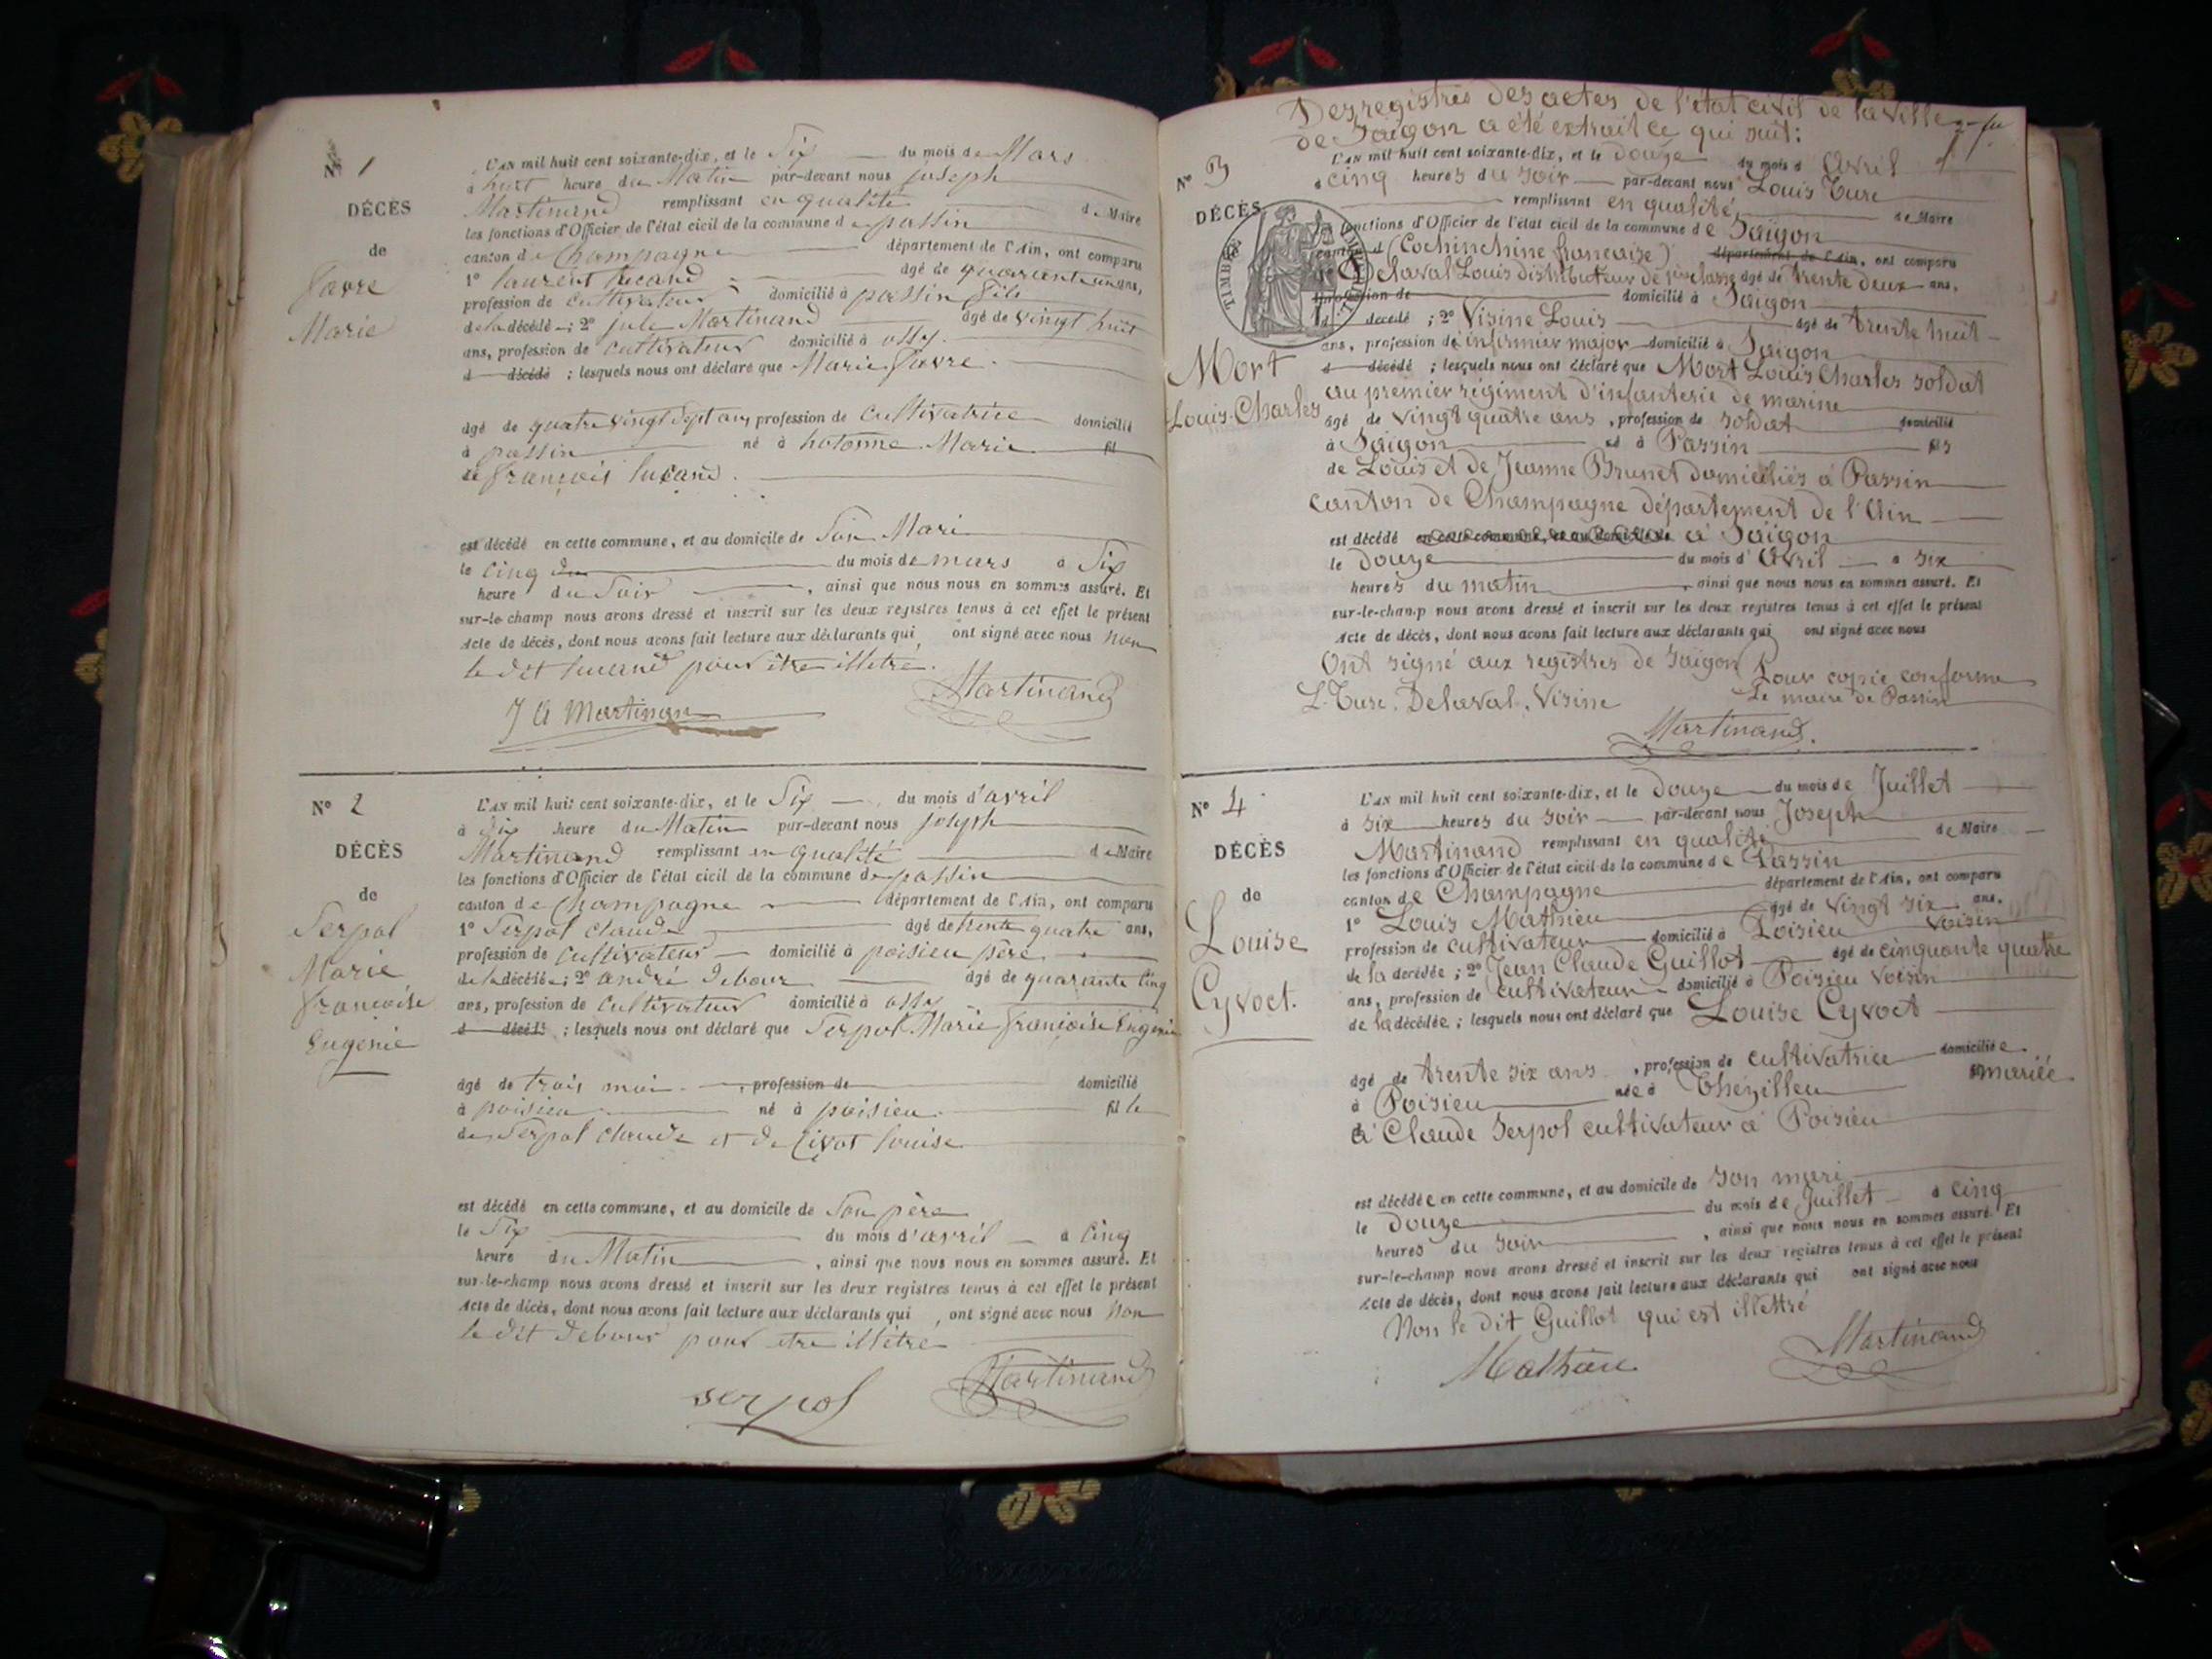 N° 1
DÉCÈS
de
Favre
Marie
L'AN mil huit cent soixante-dix, et le Six du mois de Mars
à huit heure du Matin par-devant nous joseph
Martinand remplissant en qualité de Maire
les fonctions d'Officier de l'état civil de la commune de passin
canton de Champagne département de l'Ain, ont comparu
1° laurent lucand âgé de quarante ans,
profession de cultivateur domicilié à passin fils
de la décédé ; 2° jule Martinand âgé de vingt huit
ans, profession de cultivateur domicilié à ossy
d décédé ; lesquels nous ont déclaré que Marie Favre
âgé de quatre vingt sept ans, profession de cultivatrice domicilié
à passin né à hotonne Marie fil
de françois lucand.
est décédé en cette commune, et au domicile de Son Mari
le cinq du du mois de mars à Six
heure du Soir , ainsi que nous nous en sommes assuré. Et
sur-le-champ nous avons dressé et inscrit sur les deux registres tenus à cet effet le présent
Acte de décès, dont nous avons fait lecture aux déclarants qui ont signé avec nous non
le dit lucand pour être illetré.
J A Martinan Martinand
N° 2
DÉCÈS
de
Serpol
Marie
françoise
Eugenie
L'AN mil huit cent soixante-dix, et le Six du mois d'avril
à dix heure du Matin par-devant nous joseph
Martinand remplissant en qualité de Maire
les fonctions d'Officier de l'état civil de la commune de passin
canton de Champagne département de l'Ain, ont comparu
1° Serpol claude âgé de trente quatre ans,
profession de cultivateur domicilié à poisieu père
de la décédé ; 2° andré debour âgé de quarante cinq
ans, profession de cultivateur domicilié à ossy
d décédé ; lesquels nous ont déclaré que Serpol Marie françoise Eugenie
âgé de trois moi , profession de domicilié
à poisieu né à poisieu fil le
de Serpol claude et de Civot louise
est décédé en cette commune, et au domicile de Son père
le Six du mois d'avril à cinq
heure du Matin , ainsi que nous nous en sommes assuré. Et
sur-le-champ nous avons dressé et inscrit sur les deux registres tenus à cet effet le présent
Acte de décès, dont nous avons fait lecture aux déclarants qui , ont signé avec nous Non
le dit debour pour etre illetre
serpol Martinand
Des registres des actes de l'état civil de la ville
de Saïgon a été extrait ce qui suit:
N° 3
DÉCÈS
TIMBRE
Mort
Louis-Charles
L'AN mil huit cent soixante-dix, et le douze du mois d'Avril
à cinq heures du soir par-devant nous Louis Ture
remplissant en qualité de Maire
les fonctions d'Officier de l'état civil de la commune de Saïgon
canton d (Cochinchine française) département de l'Ain, ont comparu
Delaval Louis distributeur de 1ère classe âgé de trente deux ans,
profession de domicilié à Saïgon
d décédé ; 2° Visine Louis âgé de trente huit
ans, profession de infirmier major domicilié à Saïgon
d décédé ; lesquels nous ont déclaré que Mort Louis Charles soldat
au premier régiment d'infanterie de marine
âgé de vingt quatre ans , profession de soldat domicilié
à Saïgon né à Passin fils
de Louis et de Jeanne Brunet domiciliés à Passin
canton de Champagne département de l'Ain
est décédé en cette commune, et au domicile de à Saïgon
le douze du mois d'Avril à six
heures du matin , ainsi que nous nous en sommes assuré. Et
sur-le-champ nous avons dressé et inscrit sur les deux registres tenus à cet effet le présent
Acte de décès, dont nous avons fait lecture aux déclarants qui ont signé avec nous
Ont signé aux registres de Saïgon Pour copie conforme
L. Ture. Delaval. Visine Le maire de Passin
Martinand.
N° 4
DÉCÈS
de
Louise
Cyvoct.
L'AN mil huit cent soixante-dix, et le douze du mois de Juillet
à six heures du soir par-devant nous Joseph
Martinand remplissant en qualité de Maire
les fonctions d'Officier de l'état civil de la commune de Passin
canton de Champagne département de l'Ain, ont comparu
1° Louis Mathieu âgé de vingt six ans,
profession de cultivateur domicilié à Poisieu voisin
de la décédée ; 2° Jean Claude Guillot âgé de cinquante quatre
ans, profession de cultivateur domicilié à Poisieu voisin
de la décédée ; lesquels nous ont déclaré que Louise Cyvoct
âgé de trente six ans , profession de cultivatrice domiciliée
à Poisieu née à Thezillieu mariée
à Claude Serpol cultivateur à Poisieu
est décédée en cette commune, et au domicile de son mari
le douze du mois de Juillet à cinq
heures du soir , ainsi que nous nous en sommes assuré. Et
sur-le-champ nous avons dressé et inscrit sur les deux registres tenus à cet effet le présent
Acte de décès, dont nous avons fait lecture aux déclarants qui ont signé avec nous
Non le dit Guillot qui est illettré
Mathieu Martinand